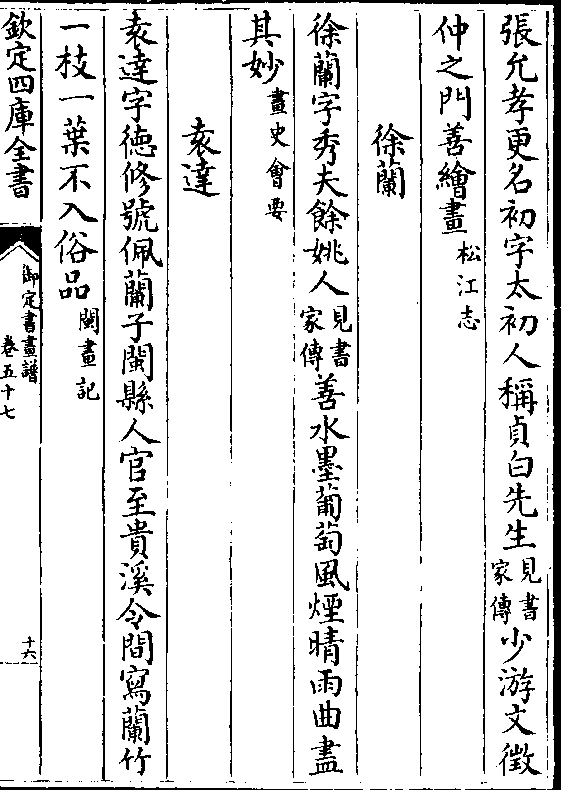 張允孝更名初字太初人稱貞白先生見書家傳少游文徵
仲之門善繪畫松江志
徐蘭
徐蘭字秀夫餘姚人見書家傳善水墨葡萄風煙晴雨曲盡
其妙畫史會要
袁達
袁達字德修號佩蘭子閩縣人官至貴溪令間寫蘭竹
一枝一葉不入俗品閩畫記
欽定四庫全書
御定書畫譜
卷五十七
十六